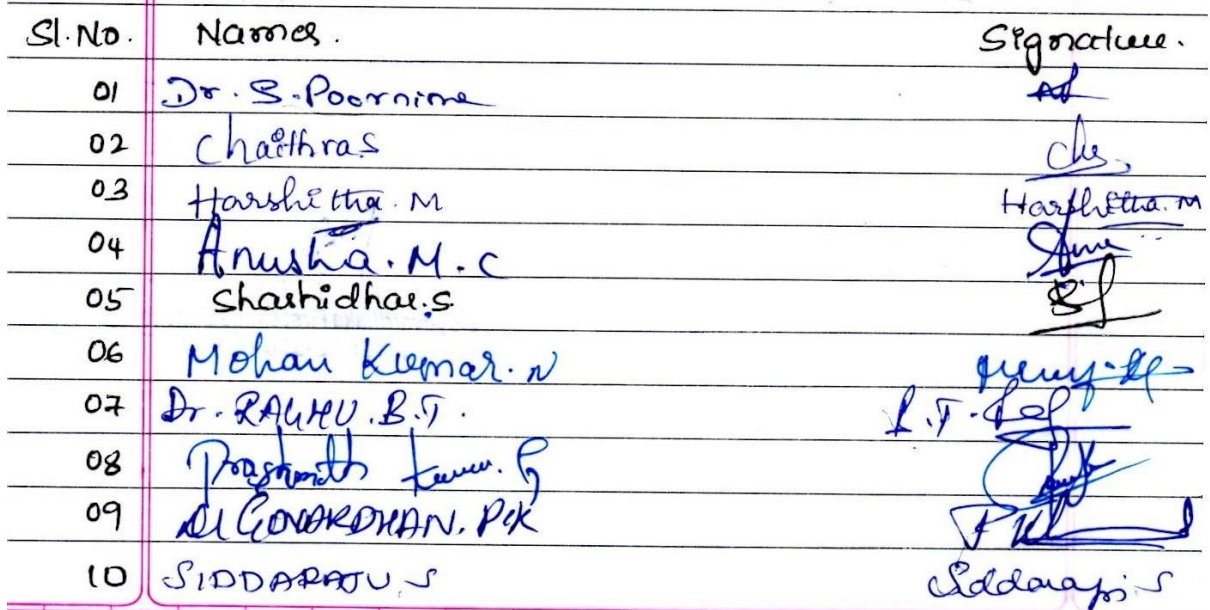 Sl. No. Names. Signature.
01 Dr. S. Poornima
02 Chaithra S Chs
03 Harshitha. M Harshitha. M
04 Anusha. M. C Anu
05 Shashidhar. S
06 Mohan Kumar. N
07 Dr. RAGHU. B. T.
08 Kumar. G
09 GOVARDHAN. P.K
10 SIDDARAJU S Siddaraju. S